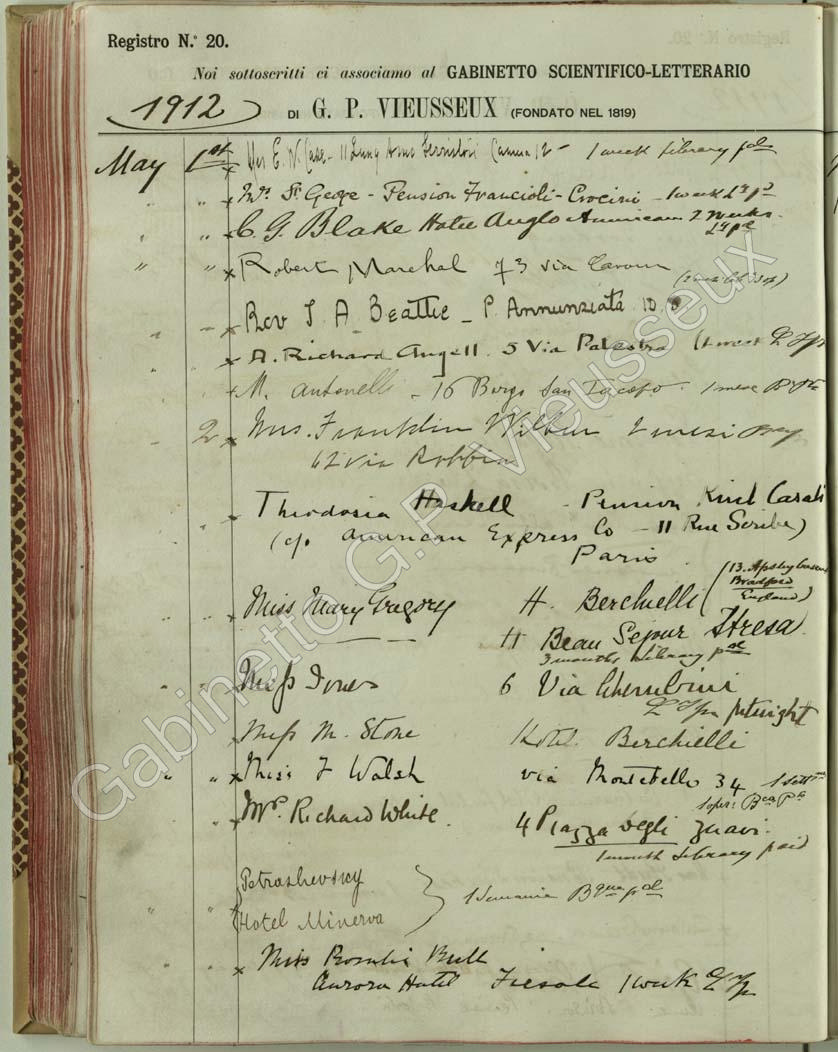 Registro N.º 20.
Noi sottoscritti ci associamo al GABINETTO SCIENTIFICO-LETTERARIO
1912
DI G. P. VIEUSSEUX (FONDATO NEL 1819)
May 1st E. W. Case - 11 Lung Arno 1 week Library pd
" Mrs St. George - Pension Francioli-Crocini - 1 week pd
" C. G. Blake Hotel Anglo American 2 weeks
pd
" " Robert Marchal 73 via Cavour
Rev J. A. Beattie - P. Annunziata 10.
A. Richard Angell. 5 Via Palestro (1 week
M. Antonelli - 16 Borgo San Jacopo. 1 mese
2 Mrs. Franklin Wilbur 2 mesi
62 via
Theodosia Haskell - Pension
(c/o American Express Co - 11 Rue Scribe)
Paris
Miss Mary Gregory H. Berchielli (13. Apsley Crescent
Bradford
England)
H Beau Sejour Stresa.
3 months Library pd
Miss Jones 6 Via Cherubini
fortnight
Miss M. Stone Hotel Berchielli
" " Miss F Walsh via Montebello 34
Mrs. Richard White. 4 Piazza degli Zuavi.
1 month Library paid
Petrashevsky
" " Hotel Minerva 1 Semaine pd
Miss Rosalie Bull
Aurora Hotel Fiesole 1 week
Gabinetto G.P. Vieusseux